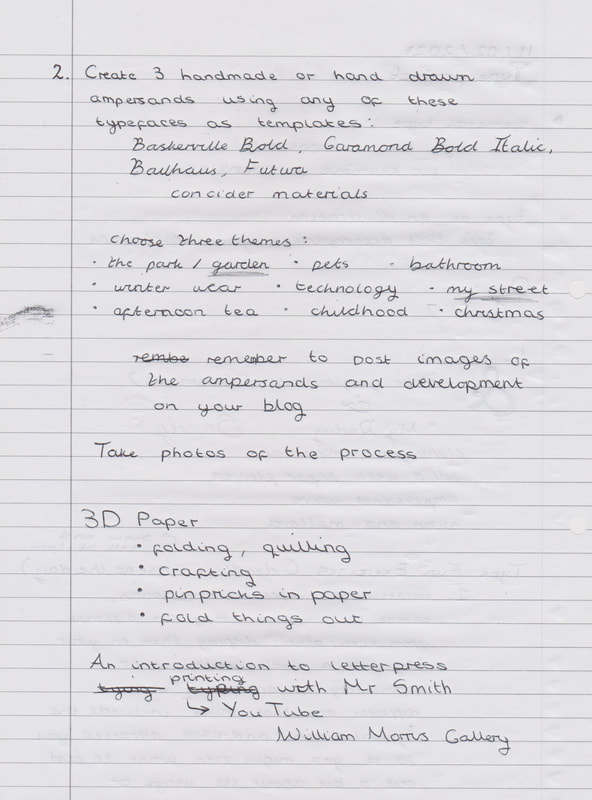 2. Create 3 handmade or hand drawn
ampersands using any of these
typefaces as templates:
Baskerville Bold, Garamond Bold Italic,
Bauhaus, Futura
concider materials
choose three themes:
· the park / garden · pets · bathroom
· winter wear · technology · my street
· afternoon tea · childhood · christmas
rembe remember to post images of
the ampersands and development
on your blog
Take photos of the process
3D Paper
• folding, quilling
• crafting
• pinpricks in paper
• fold things out
An introduction to letterpress
printing
tying typing with Mr Smith
↳ YouTube
William Morris Gallery